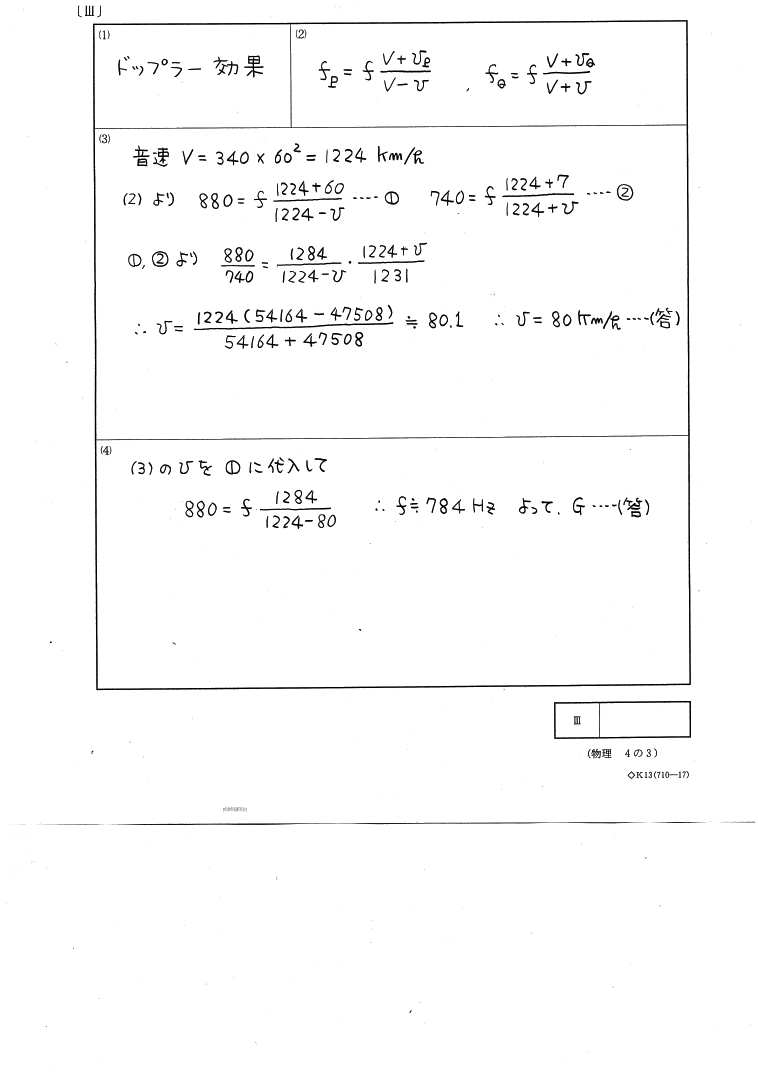 〔Ⅲ〕
(1)
ドップラー効果
(2)
f_P = f (V+v_P)/(V-v) , f_Q = f (V+v_Q)/(V+v)
(3)
音速 V = 340 × 60² = 1224 km/h
(2) より 880 = f (1224+60)/(1224-v) ---- ① 740 = f (1224+7)/(1224+v) ---- ②
①, ② より 880/740 = 1284/(1224-v) ・ (1224+v)/1231
∴ v = 1224(54164-47508)/(54164+47508) ≒ 80.1 ∴ v = 80 km/h ----(答)
(4)
(3)のvを ① に代入して
880 = f 1284/(1224-80) ∴ f ≒ 784 Hz よって, G ----(答)
Ⅲ
(物理 4の3)
◇K13(710—17)